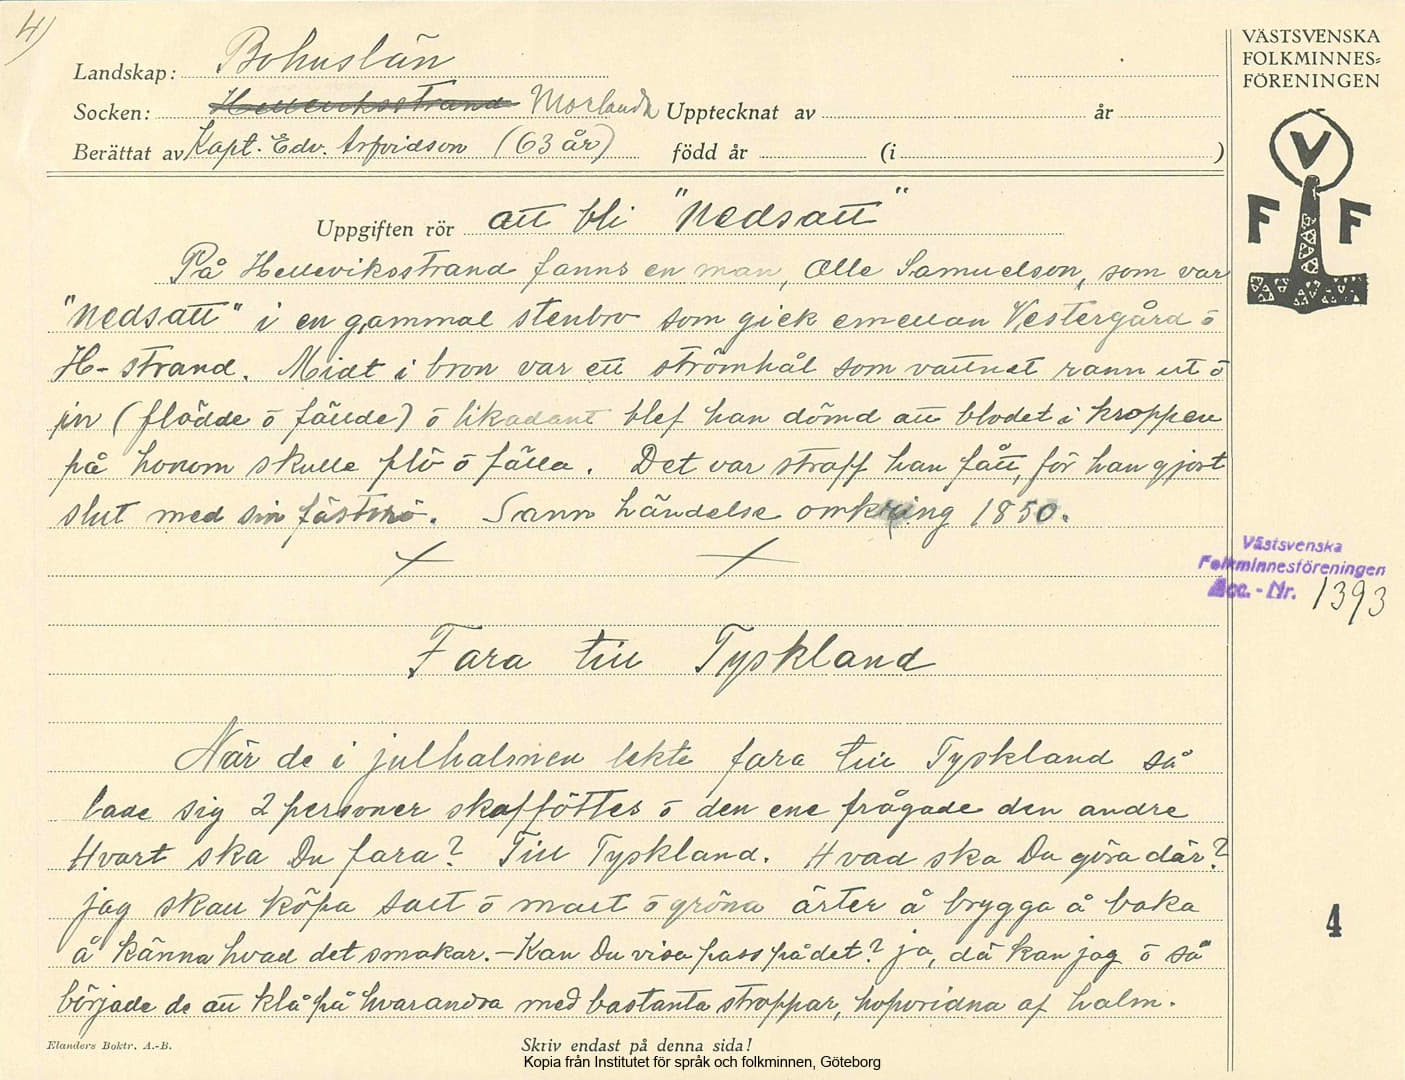 4)
VÄSTSVENSKA
FOLKMINNES=
FÖRENINGEN
V
F F
Landskap: Bohuslän
Socken: Hellevikstrand Morlanda Upptecknat av år
Berättat av Kapt. Edv. Arfvidson (63 år) född år (i )
Uppgiften rör att bli "Nedsatt"
På Hellevikostrand fanns en man, Olle Samuelson, som var
"Nedsatt" i en gammal stenbro som gick emellan Vestergård ō
H-strand. Midt i bron var ett strömhål som vattnet rann ut ō
in (flödde ō fällde) ō likadant blef han dömd att blodet i kroppen
på honom skulle flö ō fälla. Det var straff han fått, för han gjort
slut med sin fästmö. Sann händelse omkring 1850.
Västsvenska
Folkminnesföreningen
Acc.-Nr. 1393
Fara till Tyskland
När de i julhalmen lekte fara till Tyskland så
lade sig 2 personer skafföttes ō den ene frågade den andre
Hvart ska Du fara? Till Tyskland. Hvad ska Du göra där?
jag skall köpa salt ō malt ō gröna ärter å brygga å baka
å känna hvad det smakar. – Kan Du visa pass på det? ja, då kan jag ō så
började de att klå på hvarandra med bastanta stroppar, hopvridna af halm.
4
Elanders Boktr. A.-B.
Skriv endast på denna sida!
Kopia från Institutet för språk och folkminnen, Göteborg